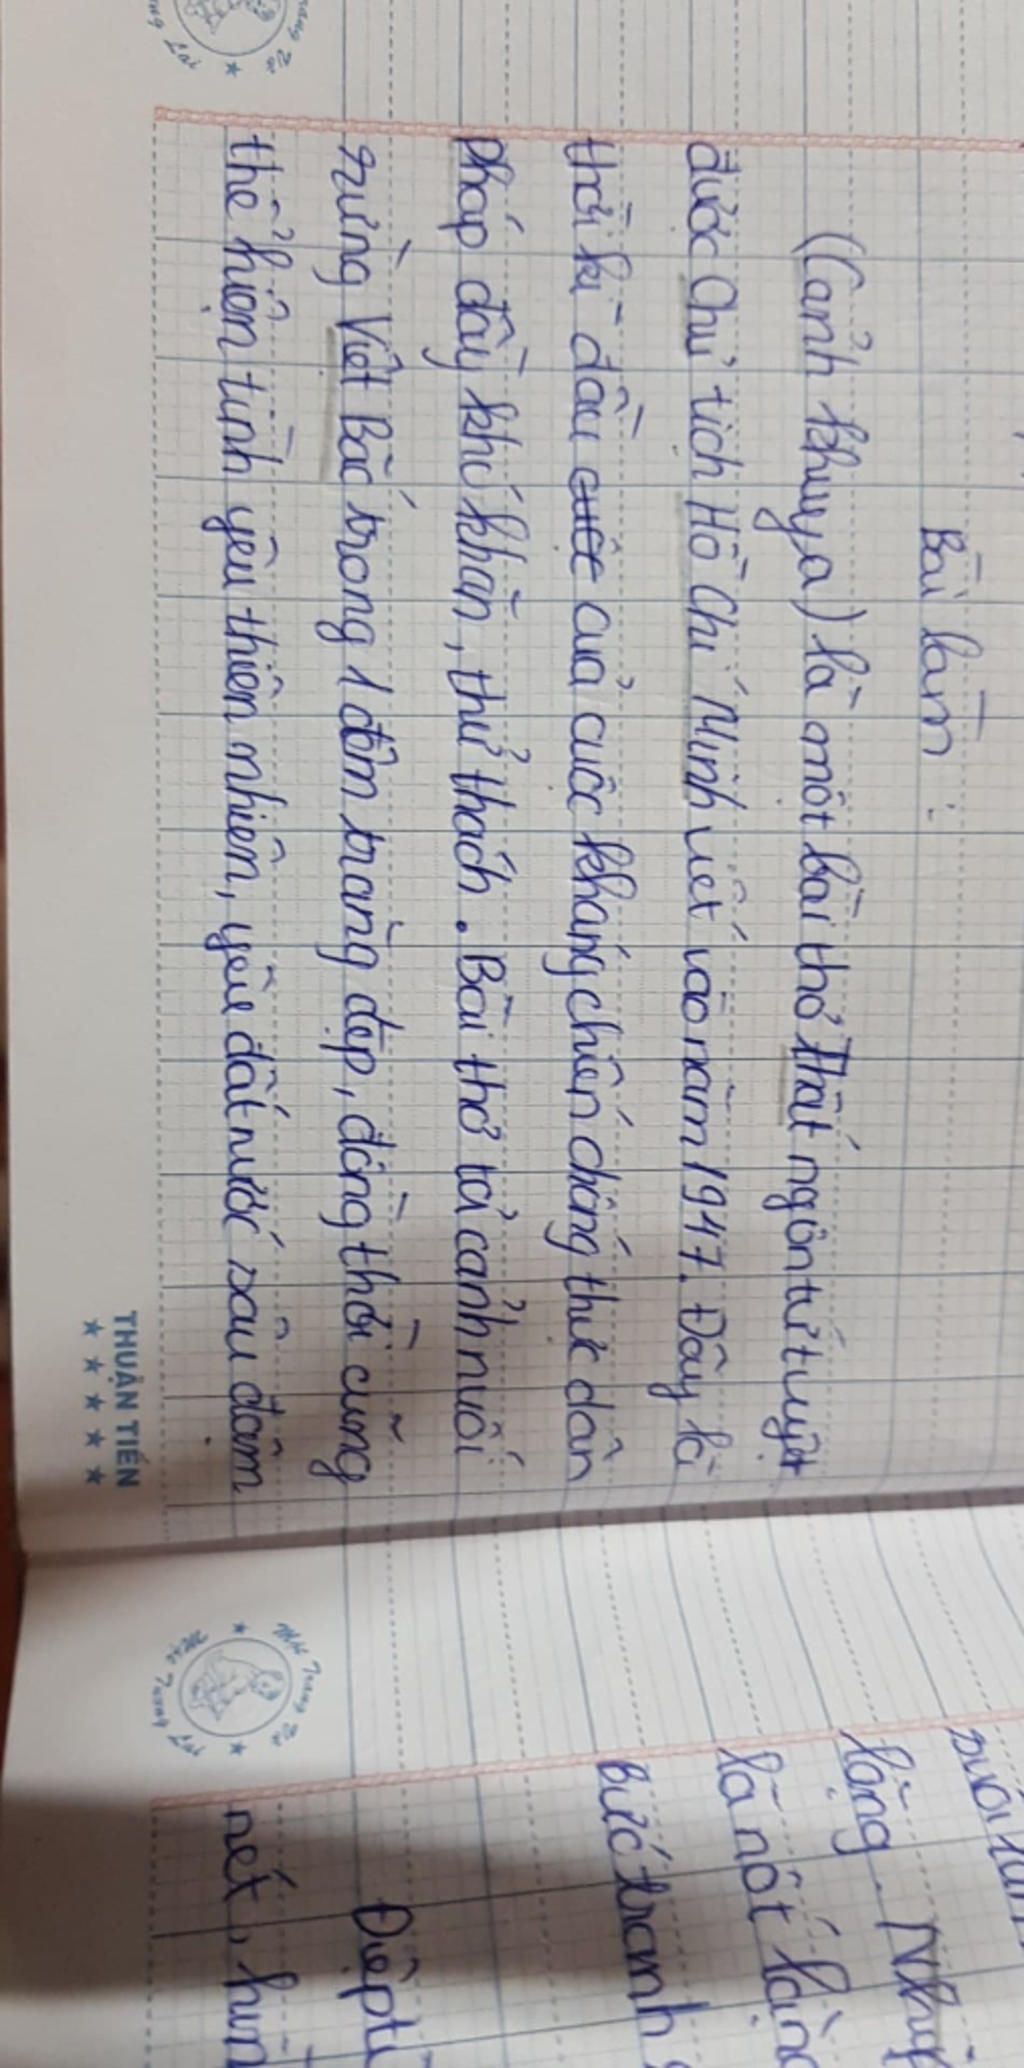 Bài làm:
(Cảnh khuya) là một bài thơ Thất ngôn tứ tuyệt
được Chủ tịch Hồ Chí Minh viết vào năm 1947. Đây là
thời kì đầu cuộc của cuộc kháng chiến chống thực dân
pháp đầy khó khăn, thử thách. Bài thơ tả cảnh núi
rừng Việt Bắc trong 1 đêm trăng đẹp, đồng thời cũng
thể hiện tình yêu thiên nhiên, yêu đất nước sâu đậm
THUẬN TIẾN
suối
lặng
là nốt lặng
Bức tranh
Điệp
nét